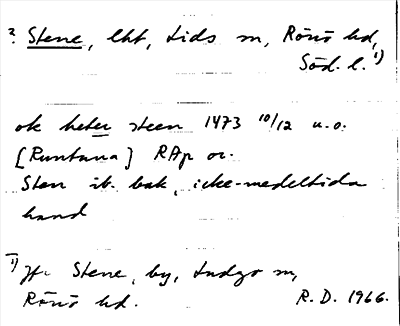 ? Stene, lht, Lids sn, Rönö hd,
Söd. l. 1)
ok heter steen 1473 10/12 u.o.
[Runtuna] RAp or.
Sten ib. bak, icke-medeltida
hand
1) Jfr Stene, by, Ludgo sn,
Rönö hd. R. D. 1966.